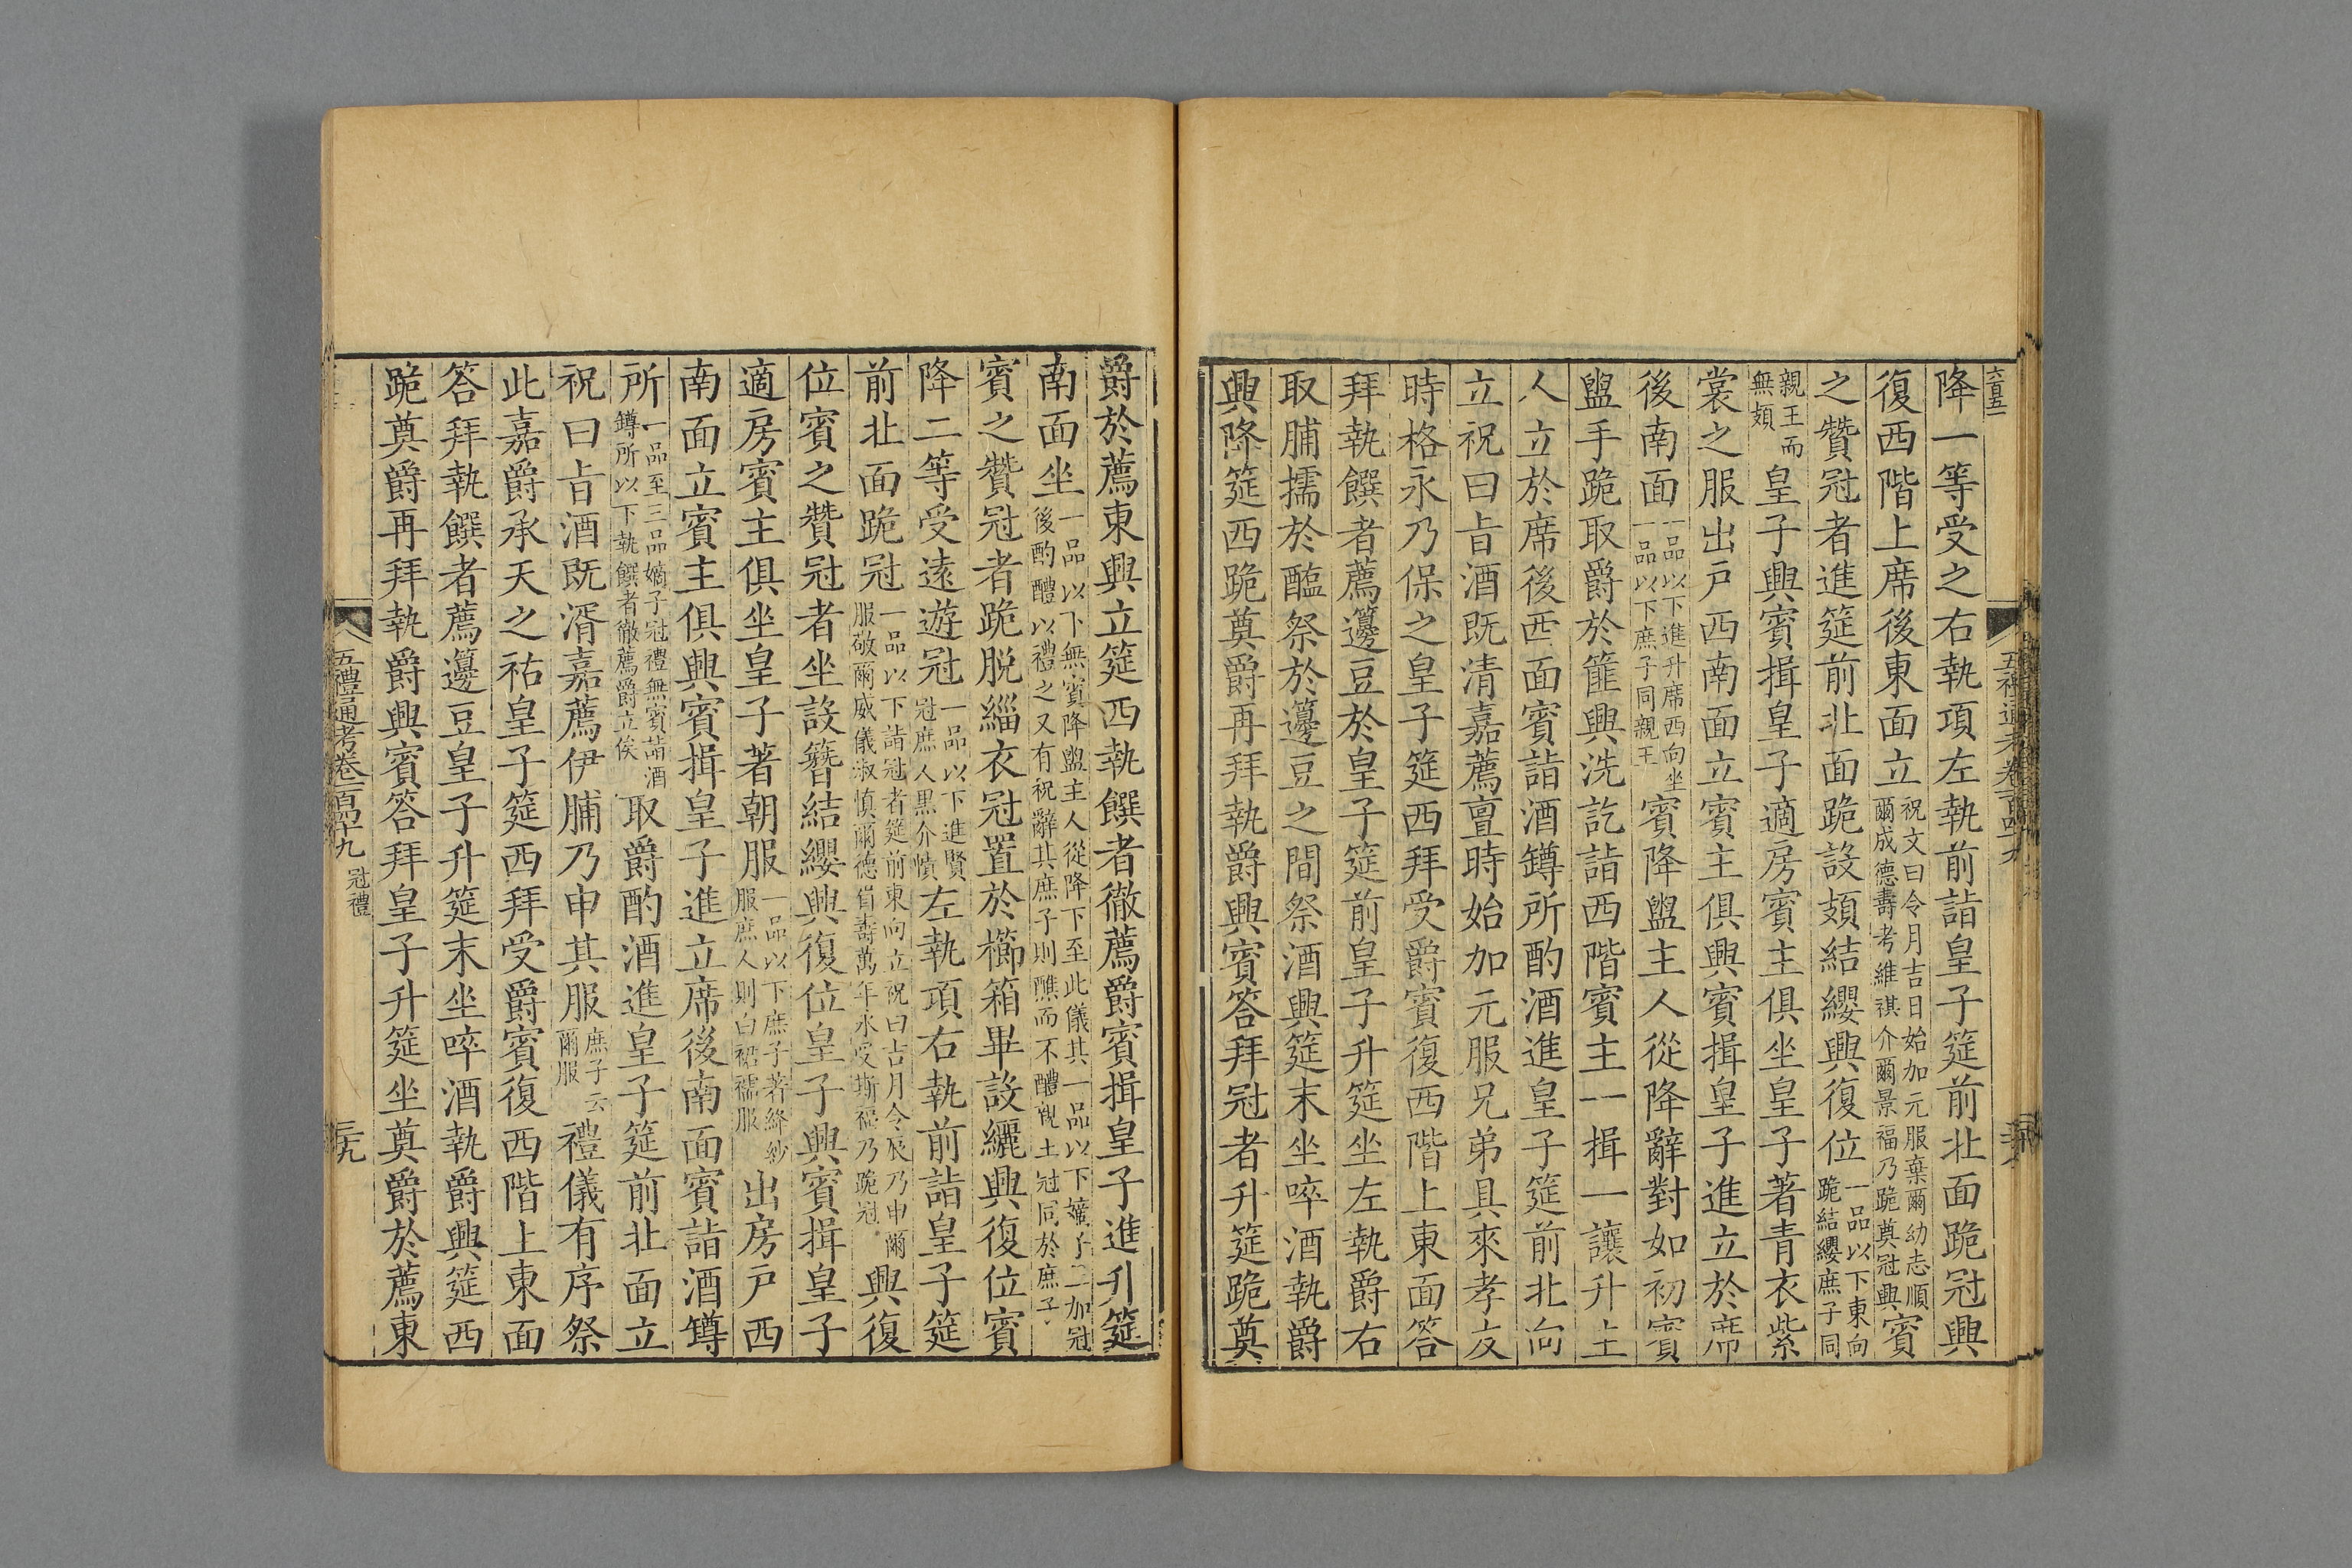 六百五
降一等受之右執項左執前詣皇子筵前北面跪冠興
復西階上席後東面立祝文曰令月吉日始加元服棄爾幼志順爾成德壽考維祺介爾景福乃跪奠冠興賓
之贊冠者進筵前北面跪設頍結纓興復位一品以下東向跪結纓庶子同
親王而無頍皇子興賓揖皇子適房賓主俱坐皇子著青衣紫
裳之服出戶西南面立賓主俱興賓揖皇子進立於席
後南面一品以下進升席西向坐一品以下庶子同親王賓降盥主人從降辭對如初賓
盥手跪取爵於篚興洗訖詣西階賓主一揖一讓升主
人立於席後西面賓詣酒罇所酌酒進皇子筵前北向
立祝曰旨酒既清嘉薦亶時始加元服兄弟具來孝友
時格永乃保之皇子筵西拜受爵賓復西階上東面答
拜執饌者薦籩豆於皇子筵前皇子升筵坐左執爵右
取脯擩於醢祭於籩豆之間祭酒興筵末坐啐酒執爵
興降筵西跪奠爵再拜執爵興賓答拜冠者升筵跪奠
爵於薦東興立筵西執饌者徹薦爵賓揖皇子進升筵
南面坐一品以下無賓降盥主人從降下至此儀其一品以下嫡子二加冠後酌醴以禮之又有祝辭其庶子則醮而不醴視士冠同於庶子
賓之贊冠者跪脫緇衣冠置於櫛箱畢設纚興復位賓
降二等受遠遊冠一品以下進賢冠庶人黑介幘左執項右執前詣皇子筵
前北面跪冠一品以下詣冠者筵前東向立祝曰吉月令辰乃申爾服敬爾威儀淑慎爾德眉壽萬年永受斯福乃跪冠興復
位賓之贊冠者坐設簪結纓興復位皇子興賓揖皇子
適房賓主俱坐皇子著朝服一品以下庶子著絳紗服庶人則白裙襦服出房戶西
南面立賓主俱興賓揖皇子進立席後南面賓詣酒罇
所一品至三品嫡子冠禮無賓詣酒罇所以下執饌者徹薦爵立俟取爵酌酒進皇子筵前北面立
祝曰旨酒既湑嘉薦伊脯乃申其服庶子云爾服禮儀有序祭
此嘉爵承天之祜皇子筵西拜受爵賓復西階上東面
答拜執饌者薦籩豆皇子升筵末坐啐酒執爵興筵西
跪奠爵再拜執爵興賓答拜皇子升筵坐奠爵於薦東
五禮通考卷一百四十九 冠禮 三九